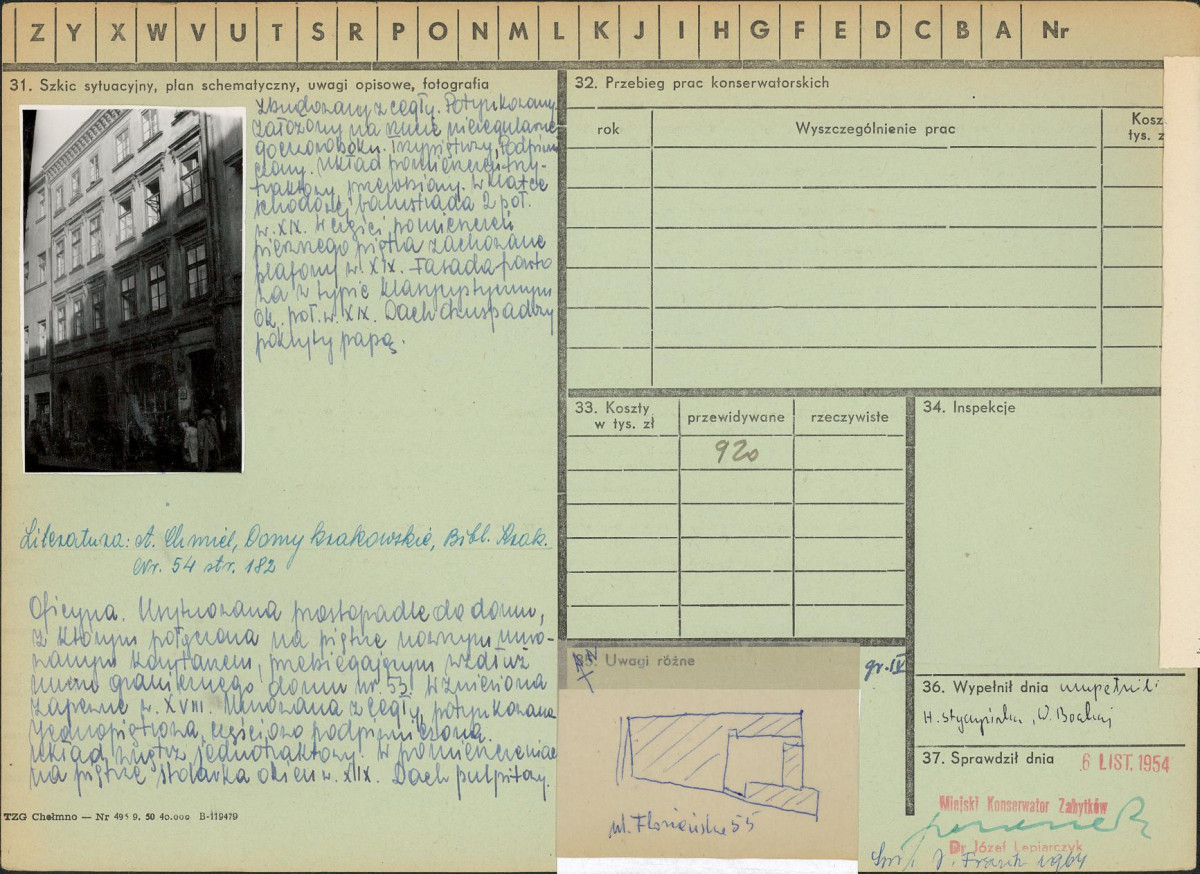 Z Y X W V U T S R P O N M L K J I H G F E D C B A Nr
31. Szkic sytuacyjny, plan schematyczny, uwagi opisowe, fotografia
Zbudowany z cegły. Potynkowany
założony na rzucie nieregularne
go czworoboku. Trzypiętrowy, podpiwni
czony. Układ pomieszczeń trzy-
traktowy, przerobiony. W klatce
schodowej balustrada 2 poł.
w. XIX. W części pomieszczeń
pierwszego piętra zachowane
plafony w. XIX. Fasada
w typie klasycystycznym
ok. poł. w. XIX. Dach dwuspadowy
pokryty papą.
Literatura: A. Chmiel, Domy krakowskie, Bibl. Krak.
Nr. 54 str. 182
Oficyna. Usytuowana prostopadle do domu,
z którym połączona na piętrze nowszym muro-
wanym korytarzem, przebiegającym wzdłuż
muru granicznego domu nr. 53. Wzniesiona
zapewne w. XVIII. Murowana z cegły, potynkowana
jednopiętrowa, częściowo podpiwniczona.
Układ wnętrz jednotraktowy. W pomieszczeniach
na piętrze stolarka okien w. XIX. Dach pulpitowy.
TZG Chełmno — Nr 495 9. 50 40.000 B-119479
32. Przebieg prac konserwatorskich
rok
Wyszczególnienie prac
Kosz
tys. z
33. Koszty
w tys. zł
przewidywane
rzeczywiste
920
34. Inspekcje
35. Uwagi różne
gr. IV
ul. Floriańska 55
36. Wypełnił dnia wypełnili
H. Stęczyńska, W. Bochnj
37. Sprawdził dnia
6 LIST. 1954
Miejski Konserwator Zabytków
Dr Józef Lepiarczyk
1964